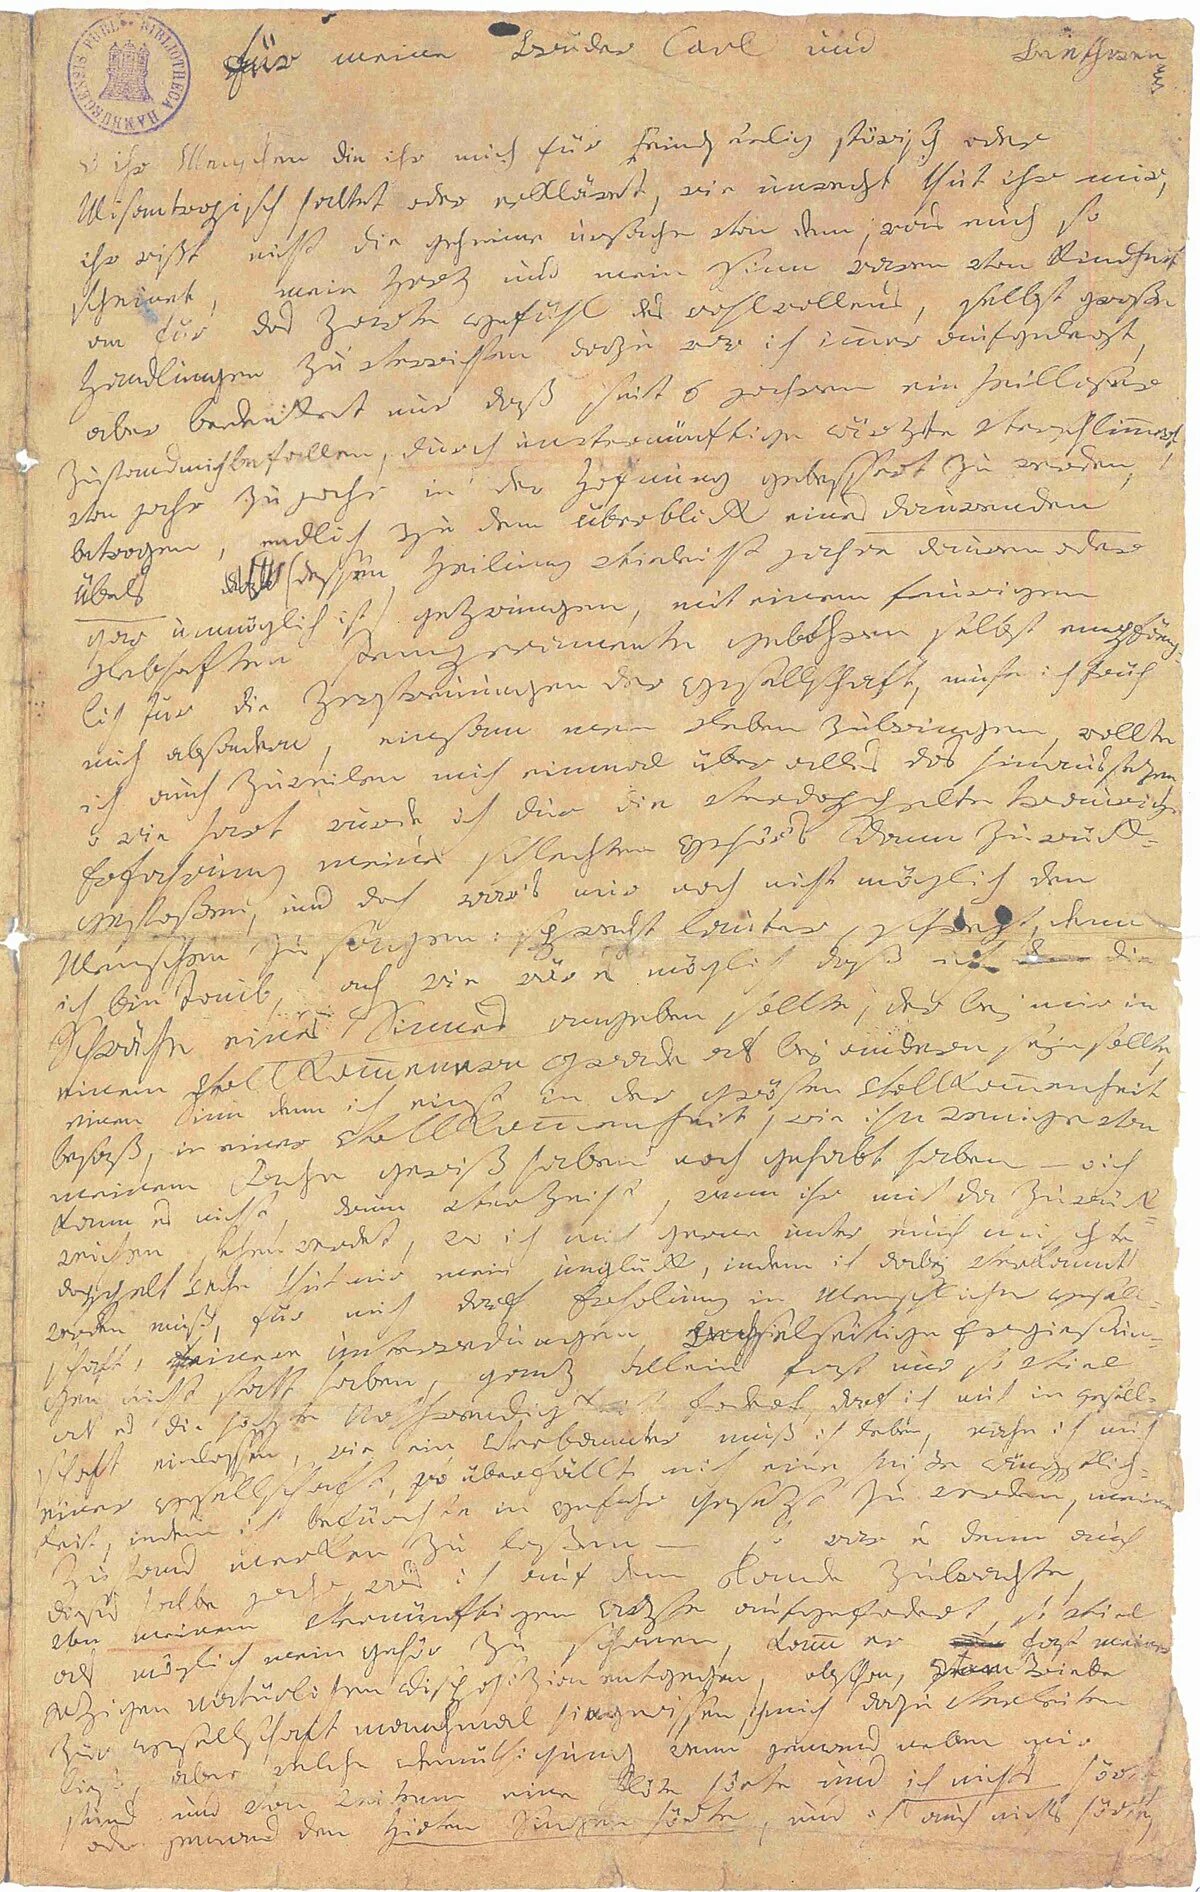 PUBL BIBLIOTHECA HAMBURGENSIS
für meine Brüder Carl und Beethowen
o ihr Menschen die ihr mich für Feindseelig störisch oder
Misantropisch haltet oder erkläret, wie unrecht thut ihr mir,
ihr wißt nicht die geheime ursache von dem, was euch so
scheinet, mein Herz und mein Sinn waren von Kindheit
an für das Zarte Gefühl des wohlwollens, selbst große
Handlungen zu verrichten dazu war ich imer aufgelegt,
aber bedenket nur daß seit 6 jahren ein heilloser
Zustand mich befallen, durch unvernünftige ärzte verschlimert,
von jahr zu jahr in der Hofnung gebessert zu werden,
betrogen, endlich zu dem überblick eines daurenden
Übels (dessen Heilung vieleicht jahre dauren oder
gar unmöglich ist) gezwungen, mit einem feurigen
Lebhaften Temperamente gebohren selbst empfäng-
lich für die Zerstreuungen der Gesellschaft, muste ich früh
mich absondern, einsam mein Leben zubringen, wollte
ich auch zuweilen mich einmal über alles das hinaussezen,
o wie hart wurde ich dur die verdoppelte traurige
Erfahrung meines schlechten Gehör's dann zurück-
gestoßen, und doch war's mir noch nicht möglich den
Menschen zu sagen: sprecht lauter, schreyt, denn
ich bin Taub, ach wie wär es möglich daß ich die
Schwäche eines Sinnes angeben sollte, der bey mir in
einem Vollkomenern Grade als bey andern seyn sollte,
einen Sinn denn ich einst in der grösten Vollkomenheit
besaß, in einer Vollkomenheit, wie ihn wenige von
meinem Fache gewiß haben noch gehabt haben — o ich
kann es nicht, drum verzeiht, wenn ihr mich da zurück-
weichen sehen werdet, wo ich mich gerne unter euch mischte
doppelt Wehe thut mir mein unglück, indem ich dabey verkannt
werden muß, für mich darf Erholung in Menschlicher Gesell-
schaft, feinere unterredungen, Wechselseitige Ergießun-
gen nicht statt haben, ganz allein fast nur so viel
als es die höchste Nothwendigkeit fodert, darf ich mich in Gesell-
schaft einlassen, wie ein Verbannter muß ich leben, nahe ich mich
einer Gesellschaft, so überfällt mich eine heiße Ängstlich-
keit, indem ich befürchte in Gefahr gesezt zu werden, meinen
Zustand merken zu laßen — so war es denn auch
dieses halbe jahr, was ich auf dem Lande zubrachte,
von meinem Vernünftigen Arzte aufgefodert, so viel
als möglich mein Gehör zu schonen, kamm er fast meiner
jezigen natürlichen Disposizion entgegen, obschon, Vom Triebe
zur Gesellschaft manchmal hingerissen, ich mich dazu verleiten
ließ, aber welche Demüthigung wenn jemand neben mir
stund und von weitem eine Flöte hörte und ich nichts hörte
oder jemand den Hirten Singen hörte, und ich auch nichts hörte,